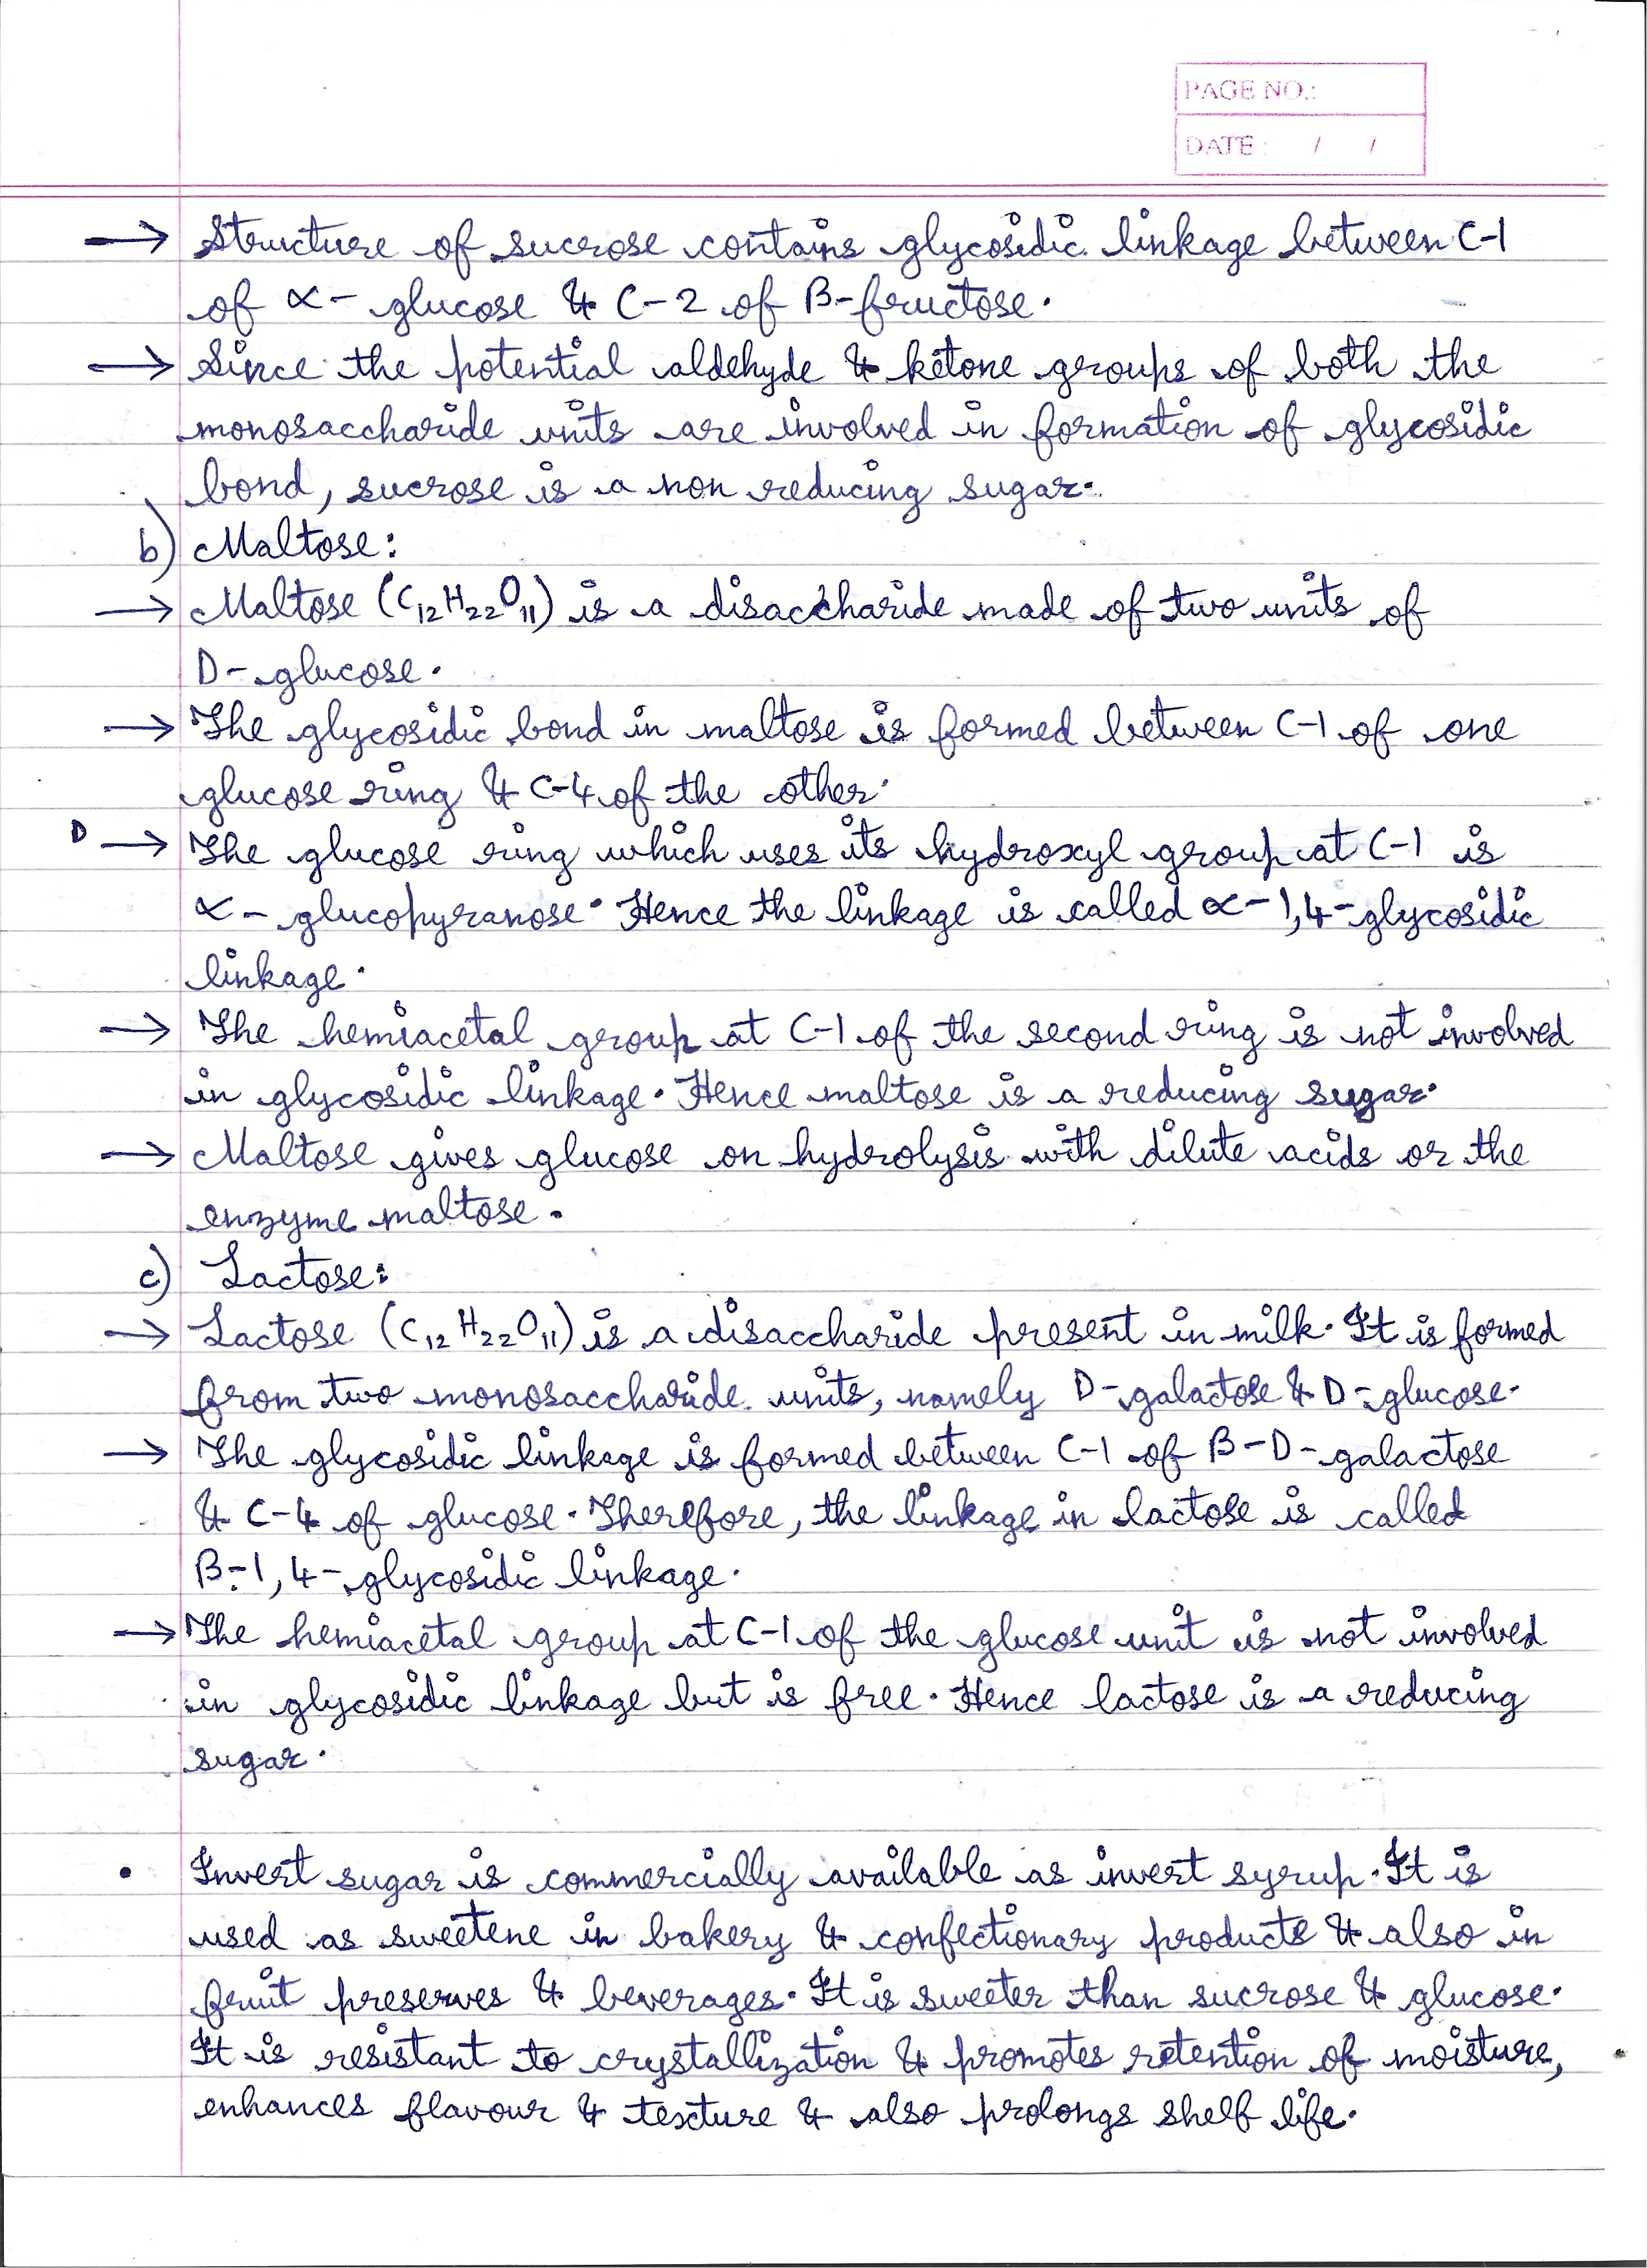 PAGE NO.:
DATE : / /
→ Structure of sucrose contains glycosidic linkage between C-1
of α- glucose & C-2 of β-fructose.
→ Since the potential aldehyde & ketone groups of both the
monosaccharide units are involved in formation of glycosidic
bond, sucrose is a non reducing sugar.
b) Maltose:
→ Maltose (C₁₂H₂₂O₁₁) is a disaccharide made of two units of
D- glucose.
→ The glycosidic bond in maltose is formed between C-1 of one
glucose ring & C-4 of the other.
D → The glucose ring which uses its hydroxyl group at C-1 is
α- glucopyranose. Hence the linkage is called α-1,4-glycosidic
linkage.
→ The hemiacetal group at C-1 of the second ring is not involved
in glycosidic linkage. Hence maltose is a reducing sugar.
→ Maltose gives glucose on hydrolysis with dilute acids or the
enzyme maltose.
c) Lactose:
→ Lactose (C₁₂H₂₂O₁₁) is a disaccharide present in milk. It is formed
from two monosaccharide units, namely D-galactose & D-glucose.
→ The glycosidic linkage is formed between C-1 of β-D-galactose
& C-4 of glucose. Therefore, the linkage in lactose is called
β-1,4-glycosidic linkage.
→ The hemiacetal group at C-1 of the glucose unit is not involved
in glycosidic linkage but is free. Hence lactose is a reducing
sugar.
• Invert sugar is commercially available as invert syrup. It is
used as sweetene in bakery & confectionary products & also in
fruit preserves & beverages. It is sweeter than sucrose & glucose.
It is resistant to crystallization & promotes retention of moisture,
enhances flavour & texture & also prolongs shelf life.